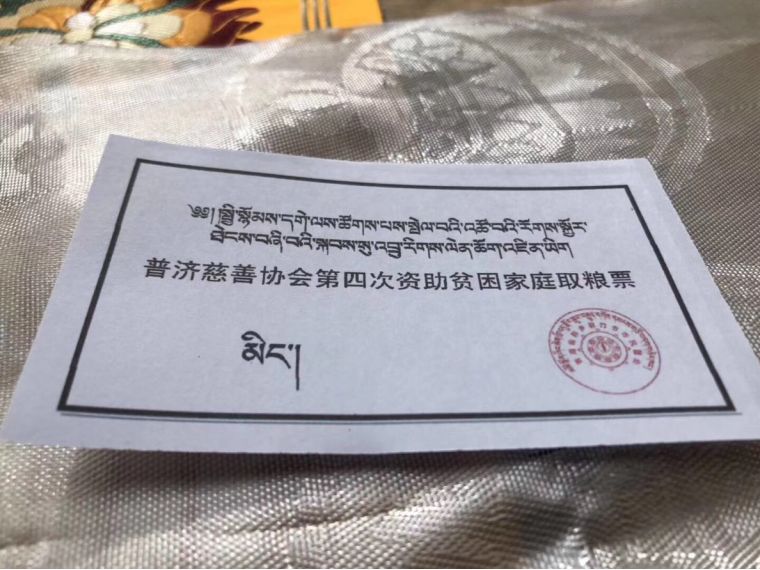 ༄༅། །སྤྱི་སྙོམས་དགེ་ལས་ཚོགས་པས་སྤེལ་བའི་འཚོ་བའི་རོགས་སྐྱོར་
ཐེངས་བཞི་བའི་སྐབས་སུ་འབྲུ་རིགས་ལེན་ཆོག་འཛིན་ཡིག
普济慈善协会第四次资助贫困家庭取粮票
མིང་།